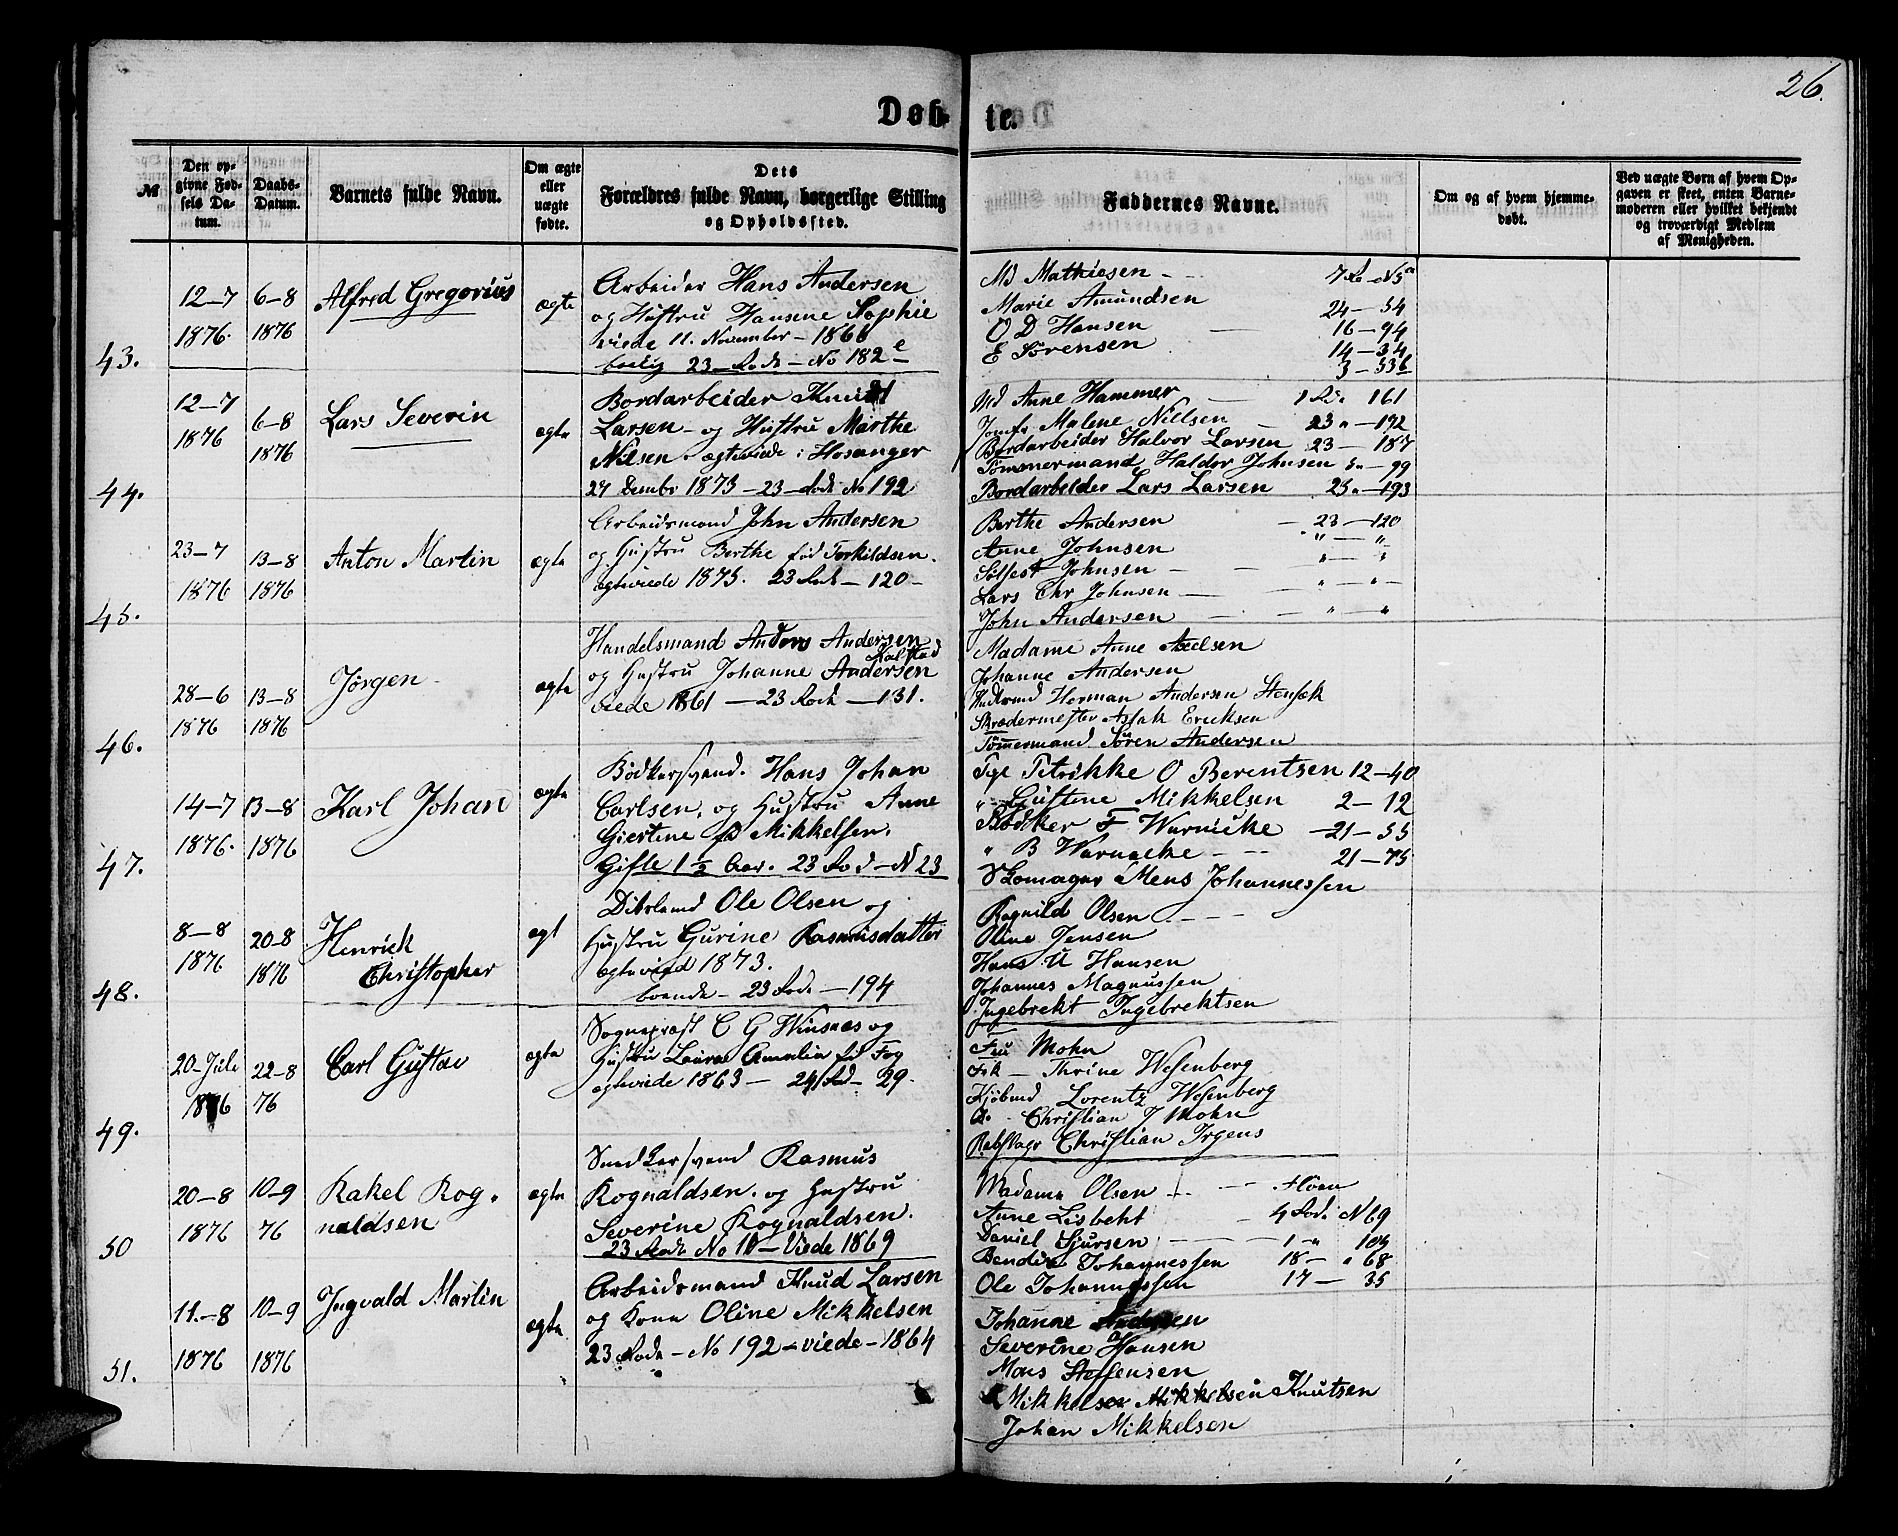 26.
Døb-te.
№
Den op-
givne Fød-
sels Da-
tum.
Daabs-
Datum.
Barnets fulde Navn.
Om ægte
eller
uægte
fødte.
Dets
Forældres fulde Navn, borgerlige Stilling
og Opholdssted.
Faddernes Navne.
Om og af hvem hjemme-
døbt.
Ved uægte Børn af hvem Op-
gaven er skeet, enten Barne-
moderen eller hvilket bekjendt
og troværdigt Medlem
af Menigheden.
43.
12-7
1876.
6-8
1876
Alfred Gregorius
ægte
Arbeider Hans Andersen
og Hustru Hansene Sophie
viede 11. November - 1866
bolig 23 - Rode - No 182 e
Md Mathiesen
Marie Amundsen 24-54
O D Hansen 16-94
E Sørensen 14-34
3-336
44.
12-7
1876
6-8
1876
Lars Severin
ægte
Bordarbeider Knud
Larsen - og Hustru Marthe
Nilsen - ægteviede i Hosanger
27 Decembr 1873 - 23 - Rode No 192
Md Anne Hammer 1 Ro 161
Jomfr Malene Nillsen 23 " - 192
Bordarbeider Halvor Larsen 23 - 187
Tømmermand Haldor Johnsen - 99
Bordarbeider Lars Larsen 23 " - 193
45.
23-7
1876
13-8
1876
Anton Martin
ægte
Arbeidsmand John Andersen
og Hustru Berthe fød Torkildsen.
ægteviede 1875. 23 Rode - 120 -
Berthe Andersen - 23 - 120
Anne Johnsen " - "
Johnsen - " - "
Lars Chr Johnsen - " - "
John Andersen - " - "
46.
28-6
1876
13-8
1876
Jørgen
ægte
Handelsmand Anders Andersen
Kalstad
og Hustru Johanne Andersen
viede 1861 - 23 Rode - 131.
Madame Anne Axelsen
Johanne Andersen
Herman Andersen
Skrædermester Erichsen
Tømmermand Sören Andersen
47.
14-7
1876.
13-8
1876
Karl Johan
ægte
Bödkersvend. Hans Johan
Carlsen. og Hustru Anne
Giertine fd Mikkelsen.
Gifte 1 ½ Aar. 23 Rod - N 23
Pige Petrikke O Berentsen 12-40
" Mikkelsen 2-12
Bødker F Warnicke -21-55
" B Warnecke - 21-75
Skomager Mons Johannessen
48.
8-8
1876
20-8
1876
Henrick
Christopher
ægt
Ole Olsen og
Hustru Gurine Rasmusdatter
ægteviede 1873.
boende - 23 Rode - 194
Ragnild Olsen
Oline Jensen
Hans U Hansen
Johannes Magnussen
Ingebrekt Ingebrektsen
49.
20-Juli
1876
22-8
76
Carl Gustav
ægte
Sognepræst C G Wisnæs og
Hustru Laura Amalia fød
ægteviede 1863 - 24 Rod - 29.
Fru Mohn
Frk - Thrine Wesenberg
Kjøbmd Lorentz Wesenberg
do. Christian J Mohn
Rebslager Christian Irgens
50
20-8
1876
10-9
76
Rakel Rog-
naldsen
ægte
Snedkersvend Rasmus
Rognaldsen. og Hustru
Severine Rognaldsen.
23 Rode No 10 - Viede 1869
Madame Olsen
Anne Lisbeht - 4 Rode N 69
Daniel Sjursen - 1 - "
Johannessen 18 - " 68
Ole Johannessen 17 - 35
51.
11.-8
1876
10-9
1876
Ingvald Martin
ægte
Arbeidsmand Knud Larsen
og Kone Oline Mikkelsen
23 Rode - No 192 - viede - 1864
Johanne Andersen
Severine Hansen
Mons Steffensen
Mikkelsen Knutsen
Johan Mikkelsen